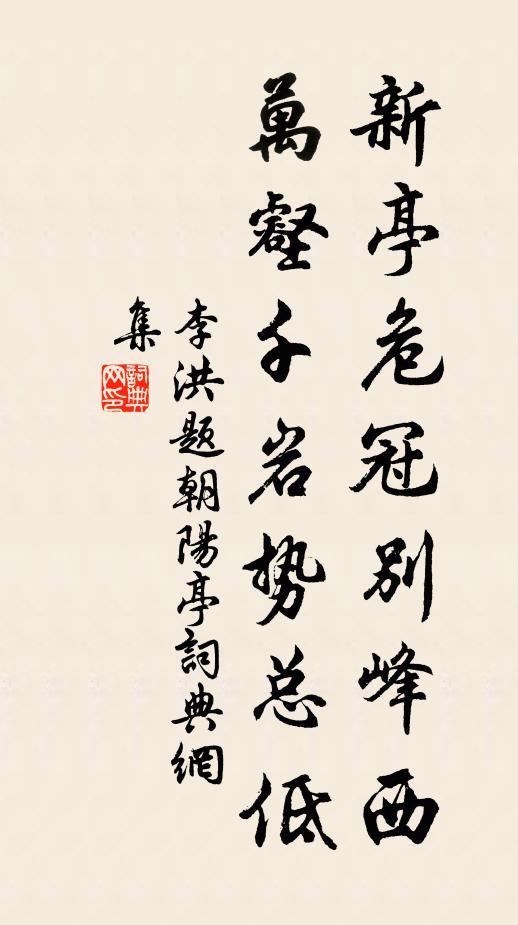 新亭危冠别峰西
萬壑千岩势总低
李洪题朝陽亭詞典網
集
詞典网印